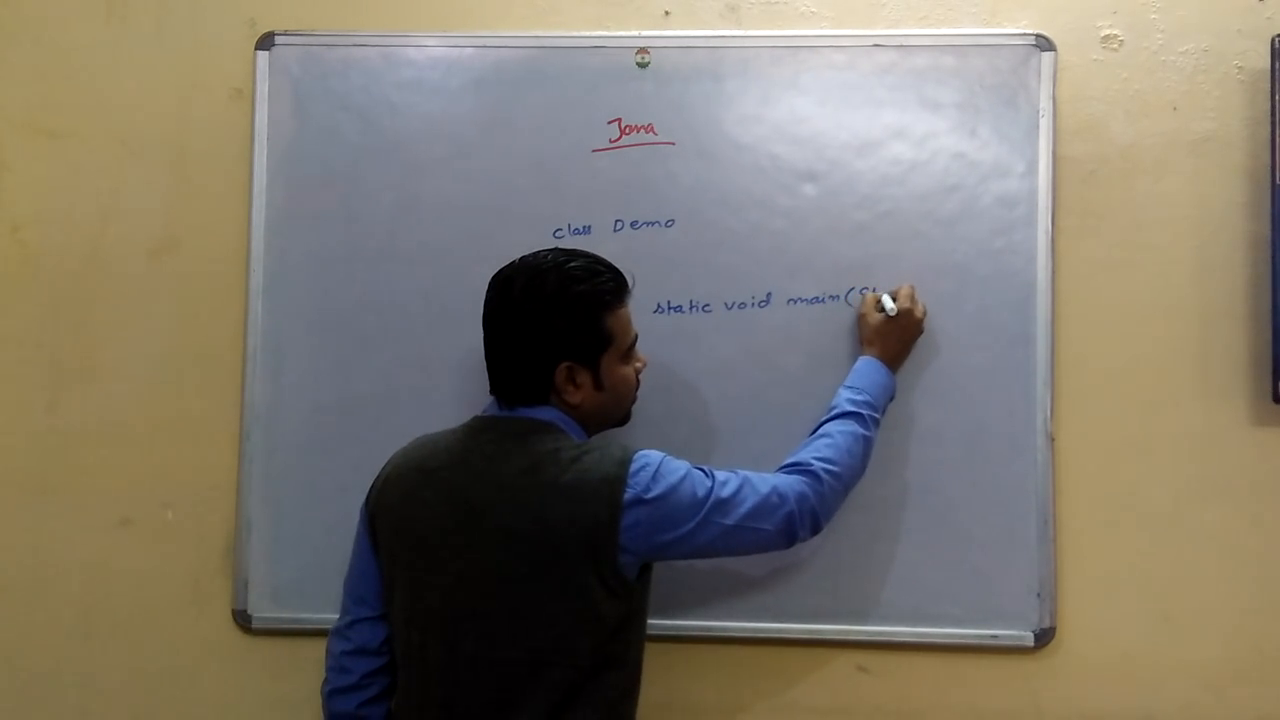 Java
class Demo
static void main(St